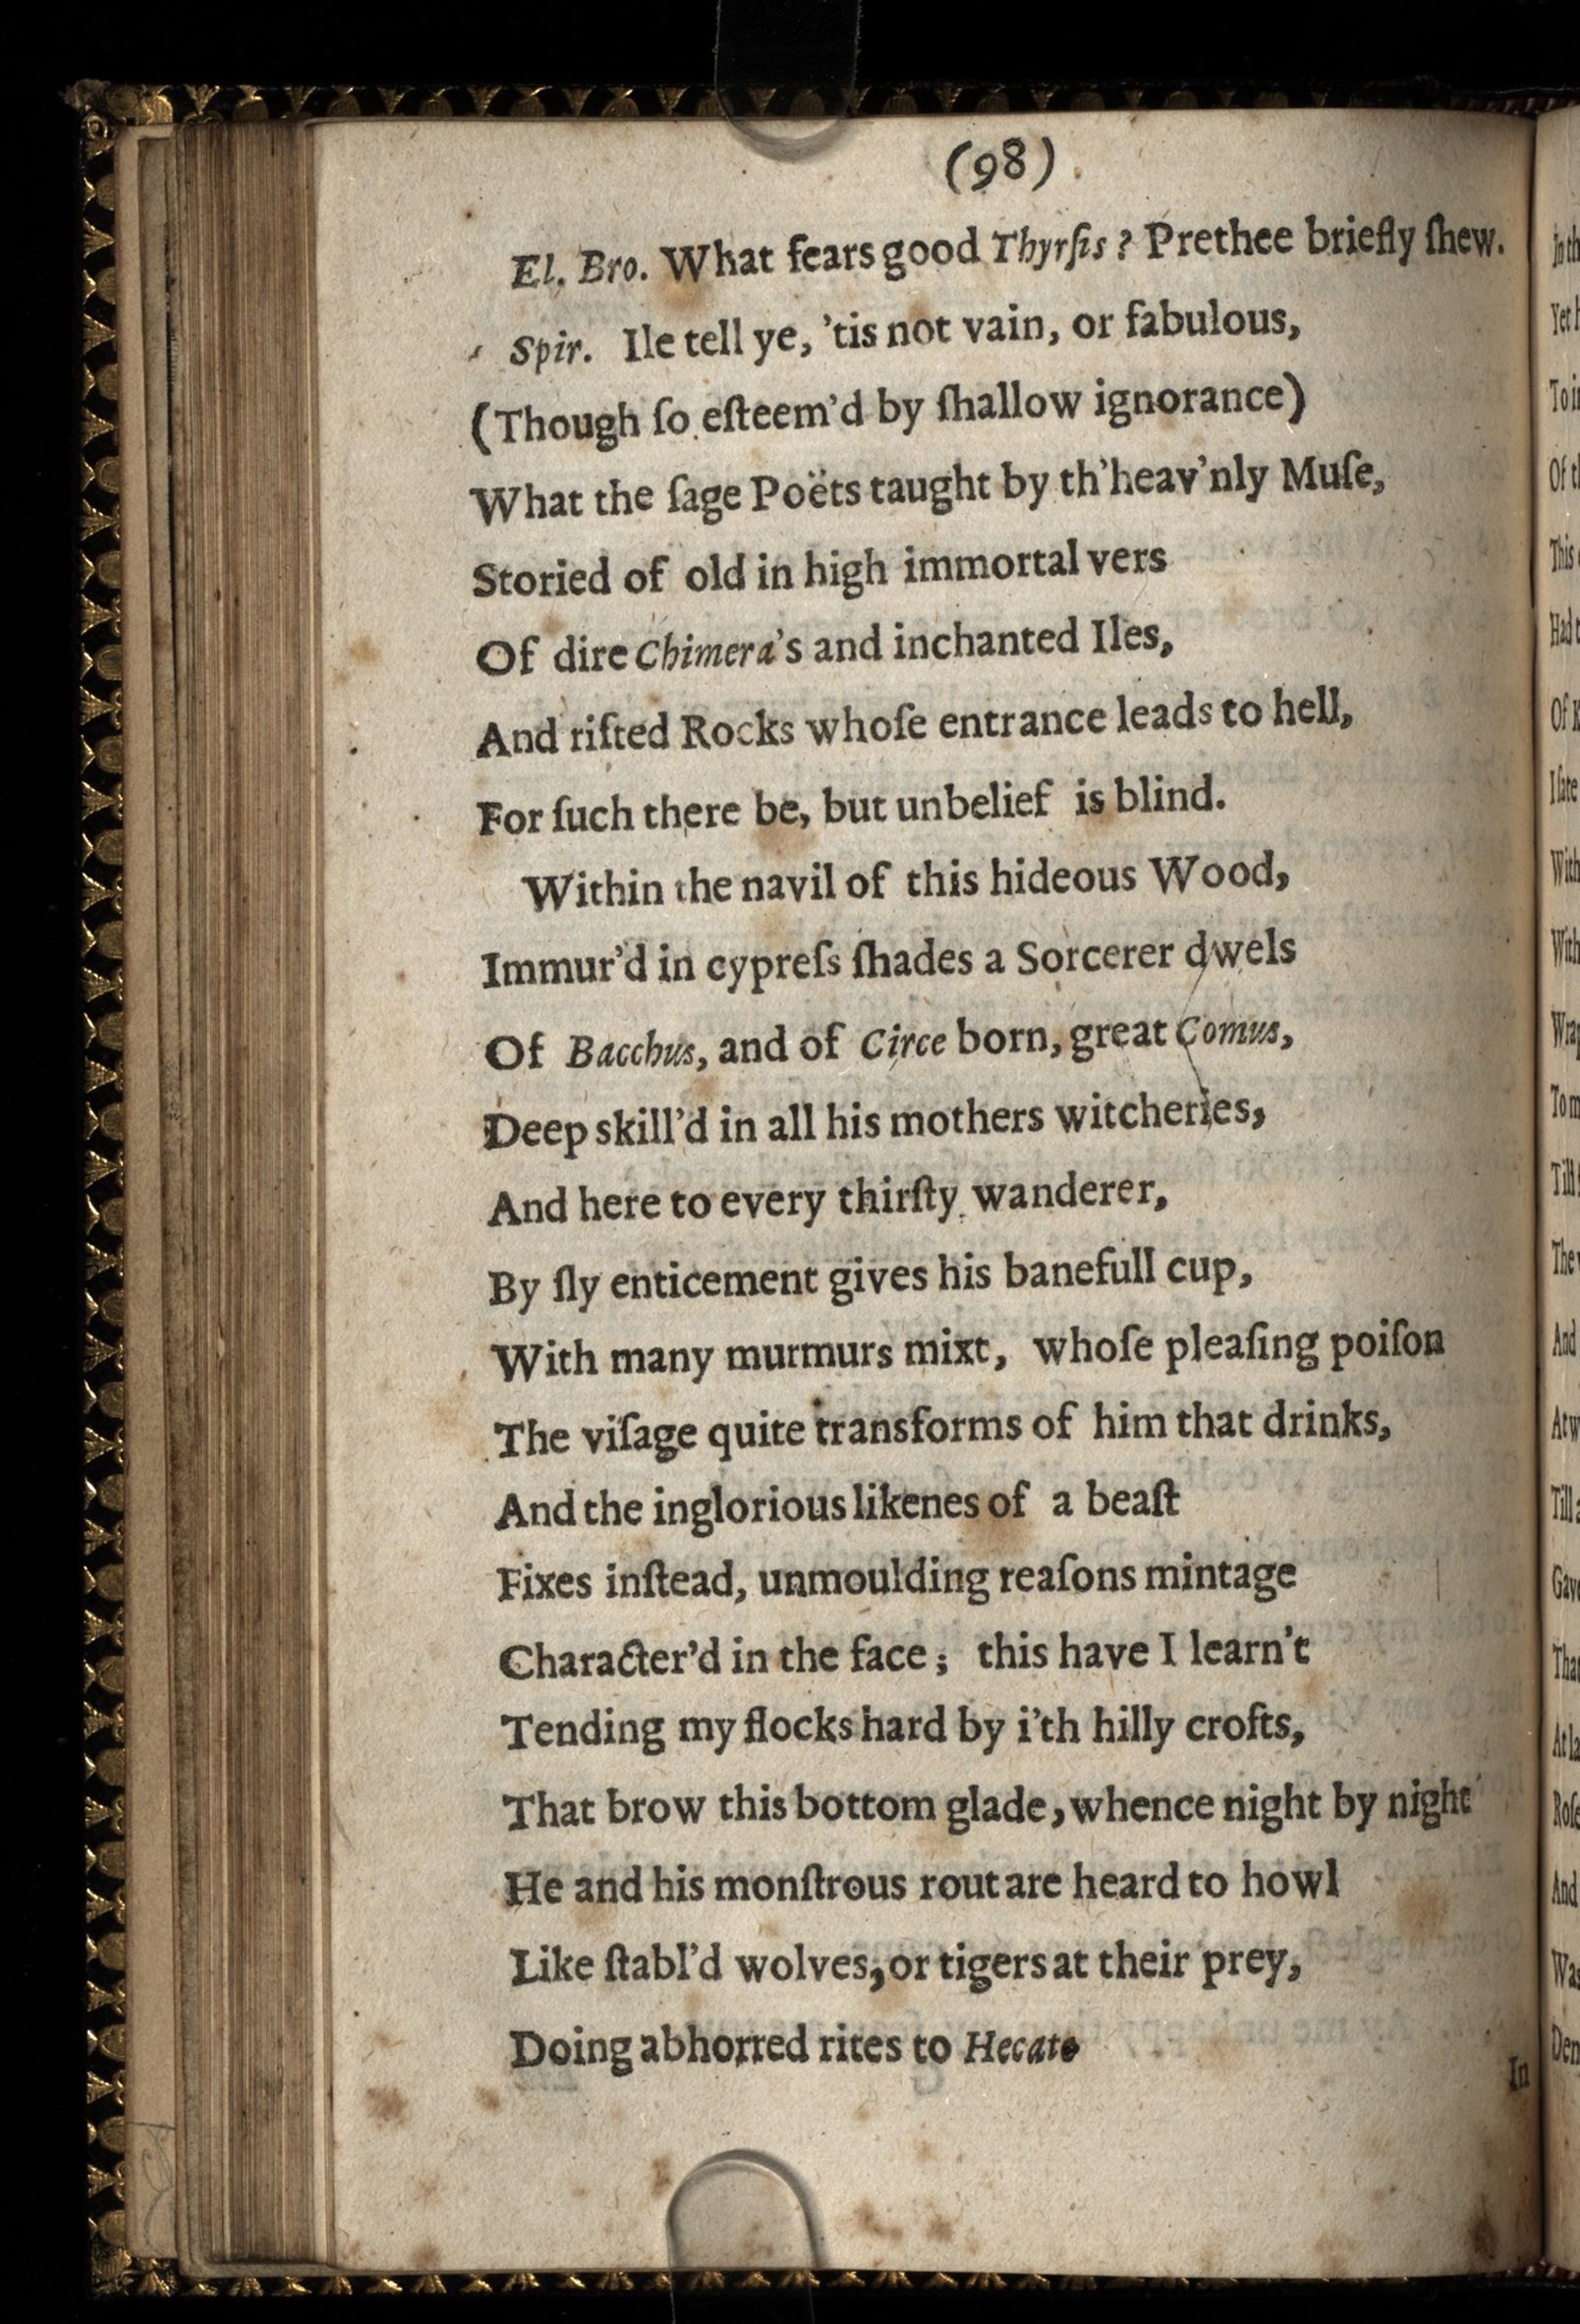 (98)
El. Bro. What fears good Thyrſis? Prethee briefly ſhew.
Spir. Ile tell ye, 'tis not vain, or fabulous,
(Though ſo eſteem'd by ſhallow ignorance)
What the ſage Poëts taught by th'heav'nly Muſe,
Storied of old in high immortal vers
Of dire Chimera's and inchanted Iles,
And rifted Rocks whoſe entrance leads to hell,
For ſuch there be, but unbelief is blind.
Within the navil of this hideous Wood,
Immur'd in cypreſs ſhades a Sorcerer dwels
Of Bacchus, and of Circe born, great Comus,
Deep skill'd in all his mothers witcheries,
And here to every thirſty wanderer,
By ſly enticement gives his banefull cup,
With many murmurs mixt, whoſe pleaſing poiſon
The viſage quite transforms of him that drinks,
And the inglorious likenes of a beaſt
Fixes inſtead, unmoulding reaſons mintage
Character'd in the face; this have I learn't
Tending my flocks hard by i'th hilly crofts,
That brow this bottom glade, whence night by night
He and his monſtrous rout are heard to howl
Like ſtabl'd wolves, or tigers at their prey,
Doing abhorred rites to Hecate
In